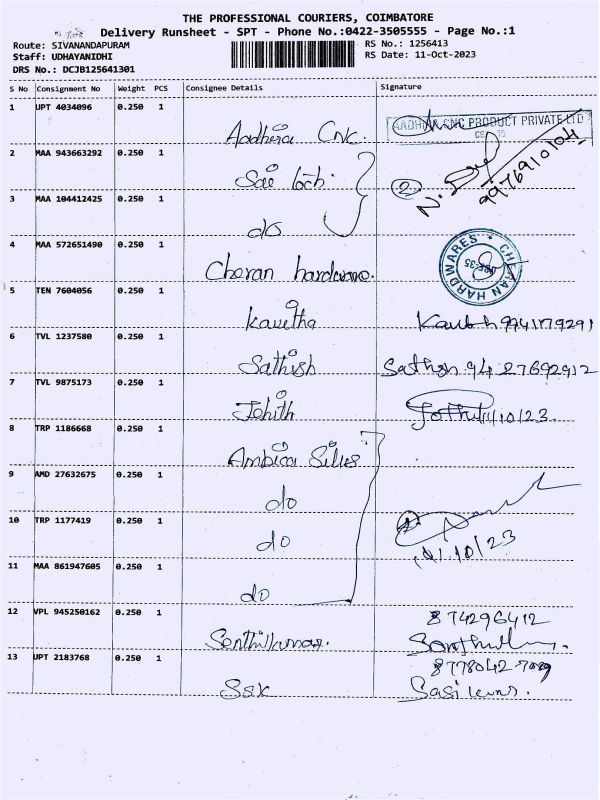 THE PROFESSIONAL COURIERS, COIMBATORE
Delivery Runsheet - SPT - Phone No.:0422-3505555 - Page No.:1
Route: SIVANANDAPURAM RS No.: 1256413
Staff: UDHAYANIDHI RS Date: 11-Oct-2023
DRS No.: DCJB125641301
S No Consignment No Weight PCS Consignee Details Signature
1 UPT 4034096 0.250 1
Aadhira Cnc. AADHIRA CNC PRODUCT PRIVATE LTD
2 MAA 943663292 0.250 1
Sai Tech 2 9976910104
3 MAA 104412425 0.250 1
do
4 MAA 572651490 0.250 1
Charan hardware. CHARAN HARDWARES
5 TEN 7604056 0.250 1
Kavitha
6 TVL 1237580 0.250 1
Sathish 94 27692912
7 TVL 9875173 0.250 1
Jehith 11/10/23
8 TRP 1186668 0.250 1
Ambica Silks
9 AMD 27632675 0.250 1
do
10 TRP 1177419 0.250 1
do 11.10/23
11 MAA 861947605 0.250 1
do
12 VPL 945250162 0.250 1 874296412
Senthilkumar.
13 UPT 2183768 0.250 1
Ssk